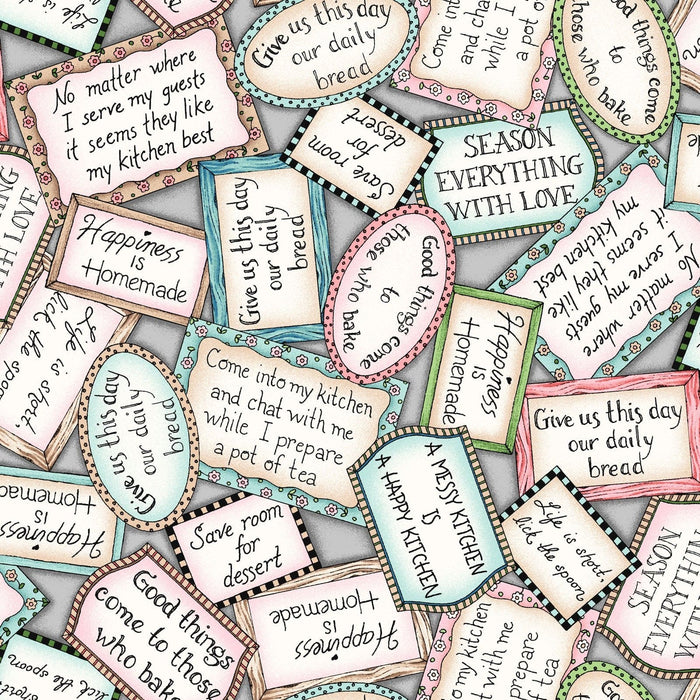 Life is short.
Give us this day
our daily
bread
Come into
and chat
while I
a pot of
Good things come
to
those who bake
No matter where
I serve my guests
it seems they like
my kitchen best
Save room
for
dessert
SEASON
EVERYTHING
WITH LOVE
WITH LOVE
Happiness
is
Homemade
Give us this day
our daily
bread
Good things come
to
those who bake
No matter where
I serve my guests
it seems they like
my kitchen best
Life is short.
lick the spoon
Happiness
is
Homemade
Come into my kitchen
and chat with me
while I prepare
a pot of tea
Give us this day
our daily
bread
Give us this day
our daily
bread
A MESSY KITCHEN
IS
A HAPPY KITCHEN
Happiness
is
Homemade
Save room
for
dessert
Life is short.
lick the spoon
SEASON
EVERYTHING
WITH LOVE
Good things
come to those
who bake
Happiness
is
Homemade
my kitchen
with me
prepare
of tea
lick the spoon